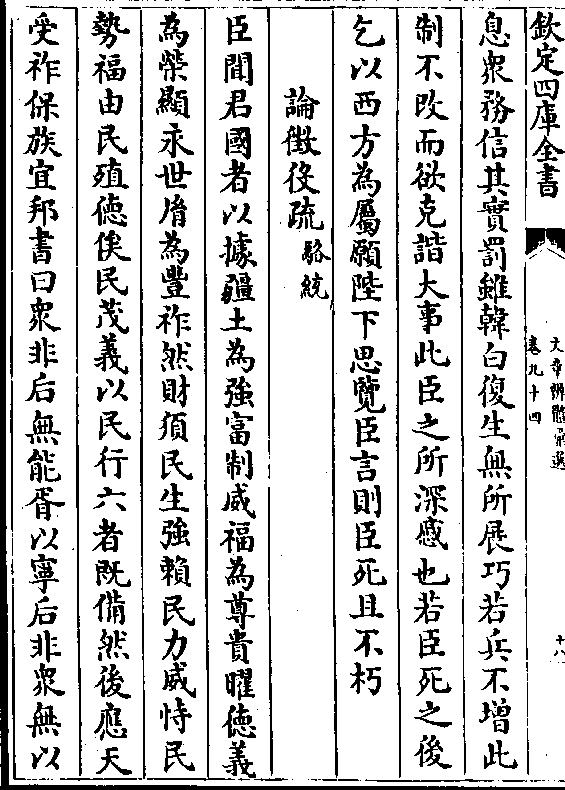 欽定四庫全書
文章辨體彙選
卷九十四
十八
息衆務信其實罰雖韓白復生無所展巧若兵不增此
制不改而欲克諧大事此臣之所深慼也若臣死之後
乞以西方為屬願陛下思覽臣言則臣死且不朽
論徵役疏 駱統
臣聞君國者以據疆土為強富制威福為尊貴曜德義
為榮顯永世𦙍為豐祚然財須民生強賴民力威恃民
勢福由民殖德俟民茂義以民行六者既備然後應天
受祚保族宜邦書曰衆非后無能胥以寧后非衆無以